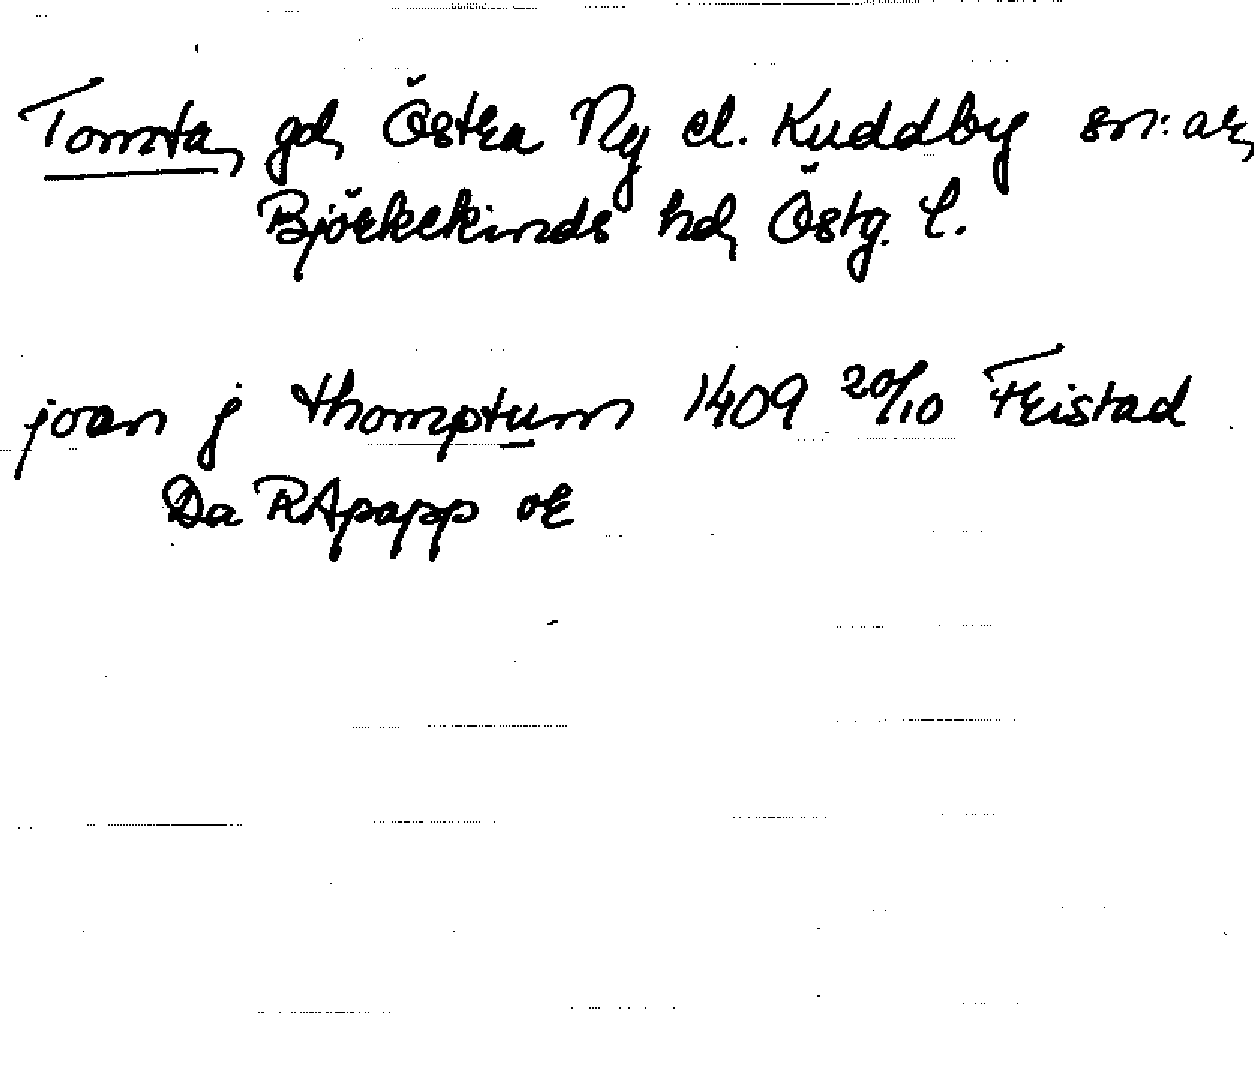 Tomta, gd, Östra Ny el. Kuddby sn:ar,
Björkekinds hd, Östg. l.
joan j thomptum 1409 20/10 Fristad
Da RApapp or